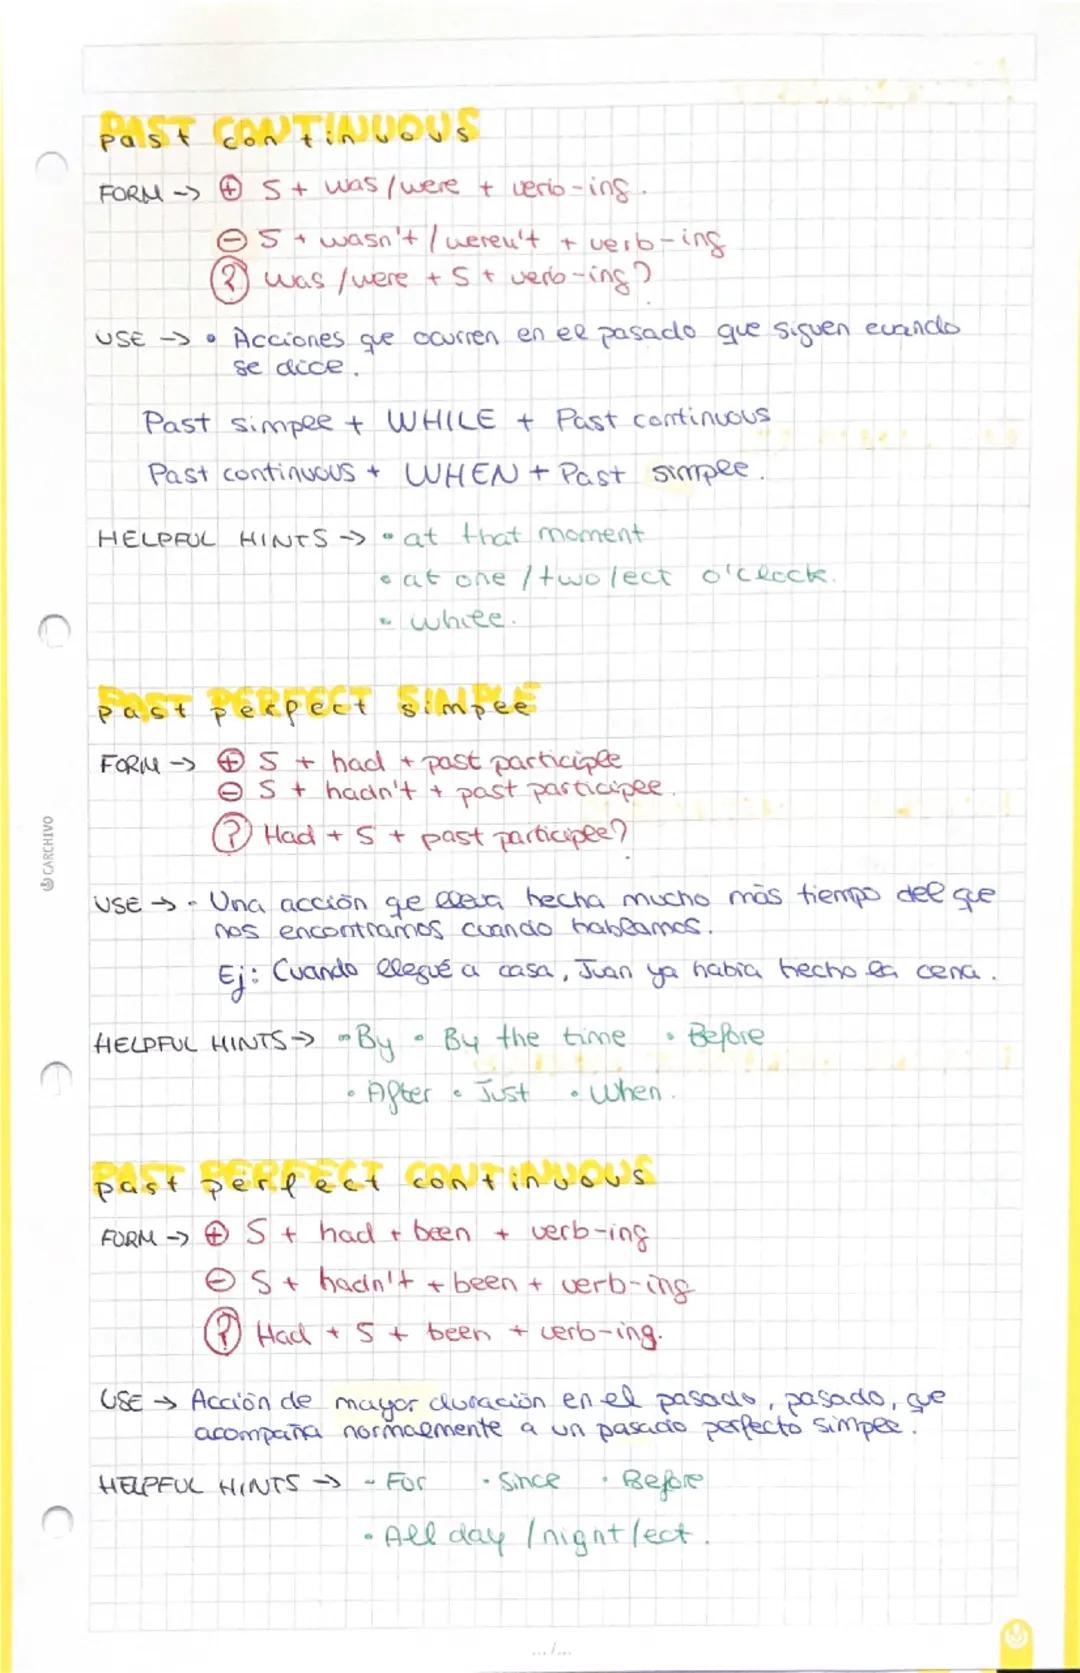 past continuous
FORM -> ⊕ S + was/were + verb-ing.
⊖ S + wasn't/weren't + verb-ing
? Was/were + S + verb-ing?
USE -> • Acciones que ocurren en el pasado que siguen cuando
se dice.
Past simple + WHILE + Past continuous
Past continuous + WHEN + Past simple.
HELPFUL HINTS -> • at that moment
• at one/two/ect o'clock.
• while.
past perfect simple
FORM -> ⊕ S + had + past participle
⊖ S + hadn't + past participle.
? Had + S + past participle?
USE -> • Una acción qe lleva hecha mucho más tiempo del que
nos encontramos cuando hablamos.
Ej: Cuando llegué a casa, Juan ya había hecho la cena.
HELPFUL HINTS -> • By • By the time • Before
• After • Just • When.
past perfect continuous
FORM -> ⊕ S + had + been + verb-ing
⊖ S + hadn't + been + verb-ing
? Had + S + been + verb-ing.
USE -> Acción de mayor duración en el pasado, pasado, que
acompaña normalmente a un pasado perfecto simple.
HELPFUL HINTS -> - For • Since • Before
• All day/night/ect.
CARCHIVO
.../...